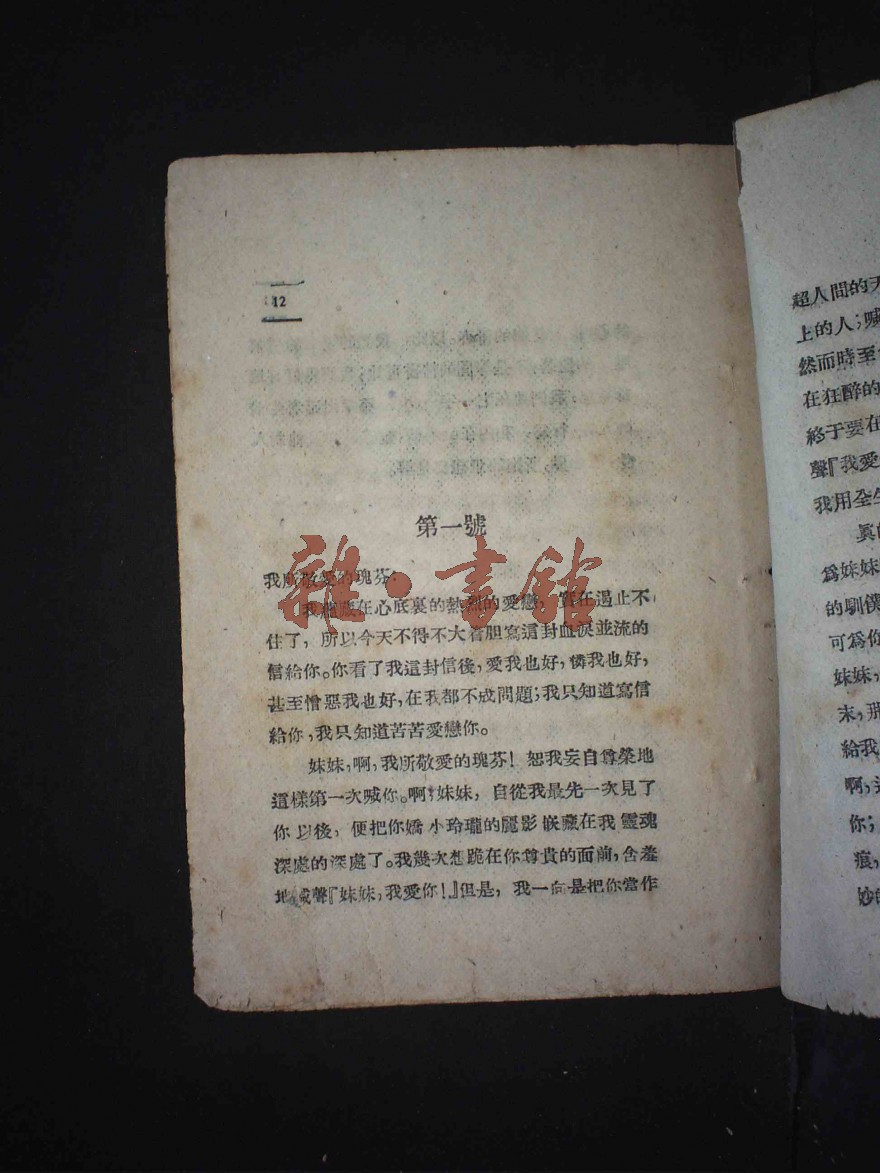 12
第一號
我所敬愛的瑰芬：
我蘊藏在心底裏的熱烈的愛戀，實在遏止不
住了，所以今天不得不大着胆寫這封血淚並流的
信給你。你看了我這封信後，愛我也好，憐我也好，
甚至憎惡我也好，在我都不成問題；我只知道寫信
給你，我只知道苦苦愛戀你。
妹妹，啊，我所敬愛的瑰芬！恕我妄自尊榮地
這樣第一次喊你。啊！妹妹，自從我最先一次見了
你以後，便把你嬌小玲瓏的麗影嵌藏在我靈魂
深處的深處了。我幾次想跪在你尊貴的面前，含羞
地喊聲『妹妹，我愛你！』但是，我一向是把你當作
超人間的天
上的人；喊
然而時至
在狂醉的
終于要在
聲『我愛
我用全生
眞的
爲妹妹
的馴僕
可爲你
妹妹，
末，那
給我
啊，
你；
痕，
妙的
雜·書館